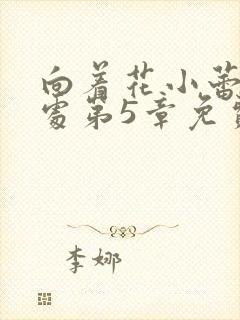 向着花小蕾
处第5章免
李娜